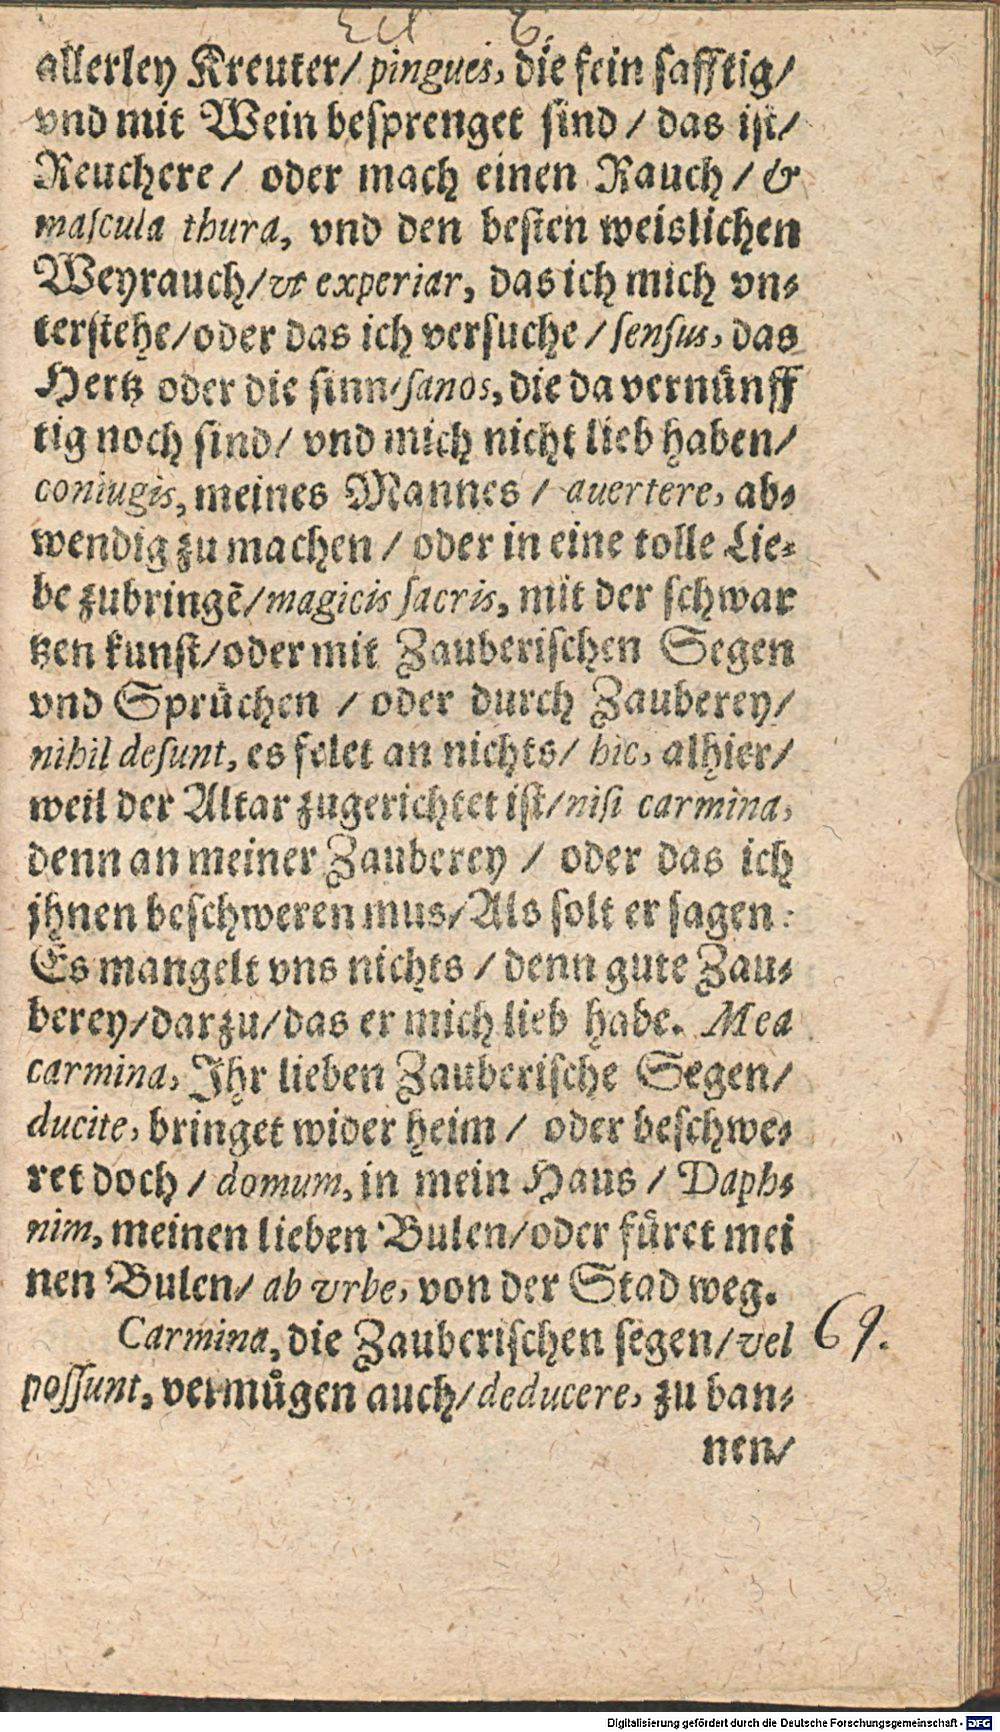 Ecl 8.
allerley Kreuter/ pingues, die fein safftig/
vnd mit Wein besprenget sind / das ist/
Reuchere / oder mach einen Rauch / &
mascula thura, vnd den besten weislichen
Weyrauch/ vt experiar, das ich mich vn⸗
terstehe/oder das ich versuche / sensus, das
Hertz oder die sinn/sanos, die da vernünff
tig noch sind/ vnd mich nicht lieb haben/
coniugis, meines Mannes / auertere, ab⸗
wendig zu machen / oder in eine tolle Lie⸗
be zubringē/magicis sacris, mit der schwar
tzen kunst/oder mit Zauberischen Segen
vnd Sprüchen / oder durch Zauberey/
nihil desunt, es felet an nichts/ hic, alhier/
weil der Altar zugerichtet ist/nisi carmina,
denn an meiner Zauberey / oder das ich
jhnen beschweren mus/Als solt er sagen:
Es mangelt vns nichts / denn gute Zau⸗
berey/darzu/das er mich lieb habe. Mea
carmina, Ihr lieben Zauberische Segen/
ducite, bringet wider heim / oder beschwe⸗
ret doch / domum, in mein Haus / Daph⸗
nim, meinen lieben Bulen/oder füret mei
nen Bulen/ ab vrbe, von der Stad weg.
Carmina, die Zauberischen segen/vel
possunt, vermůgen auch/deducere, zu ban⸗
nen/
69.
Digitalisierung gefördert durch die Deutsche Forschungsgemeinschaft - DFG